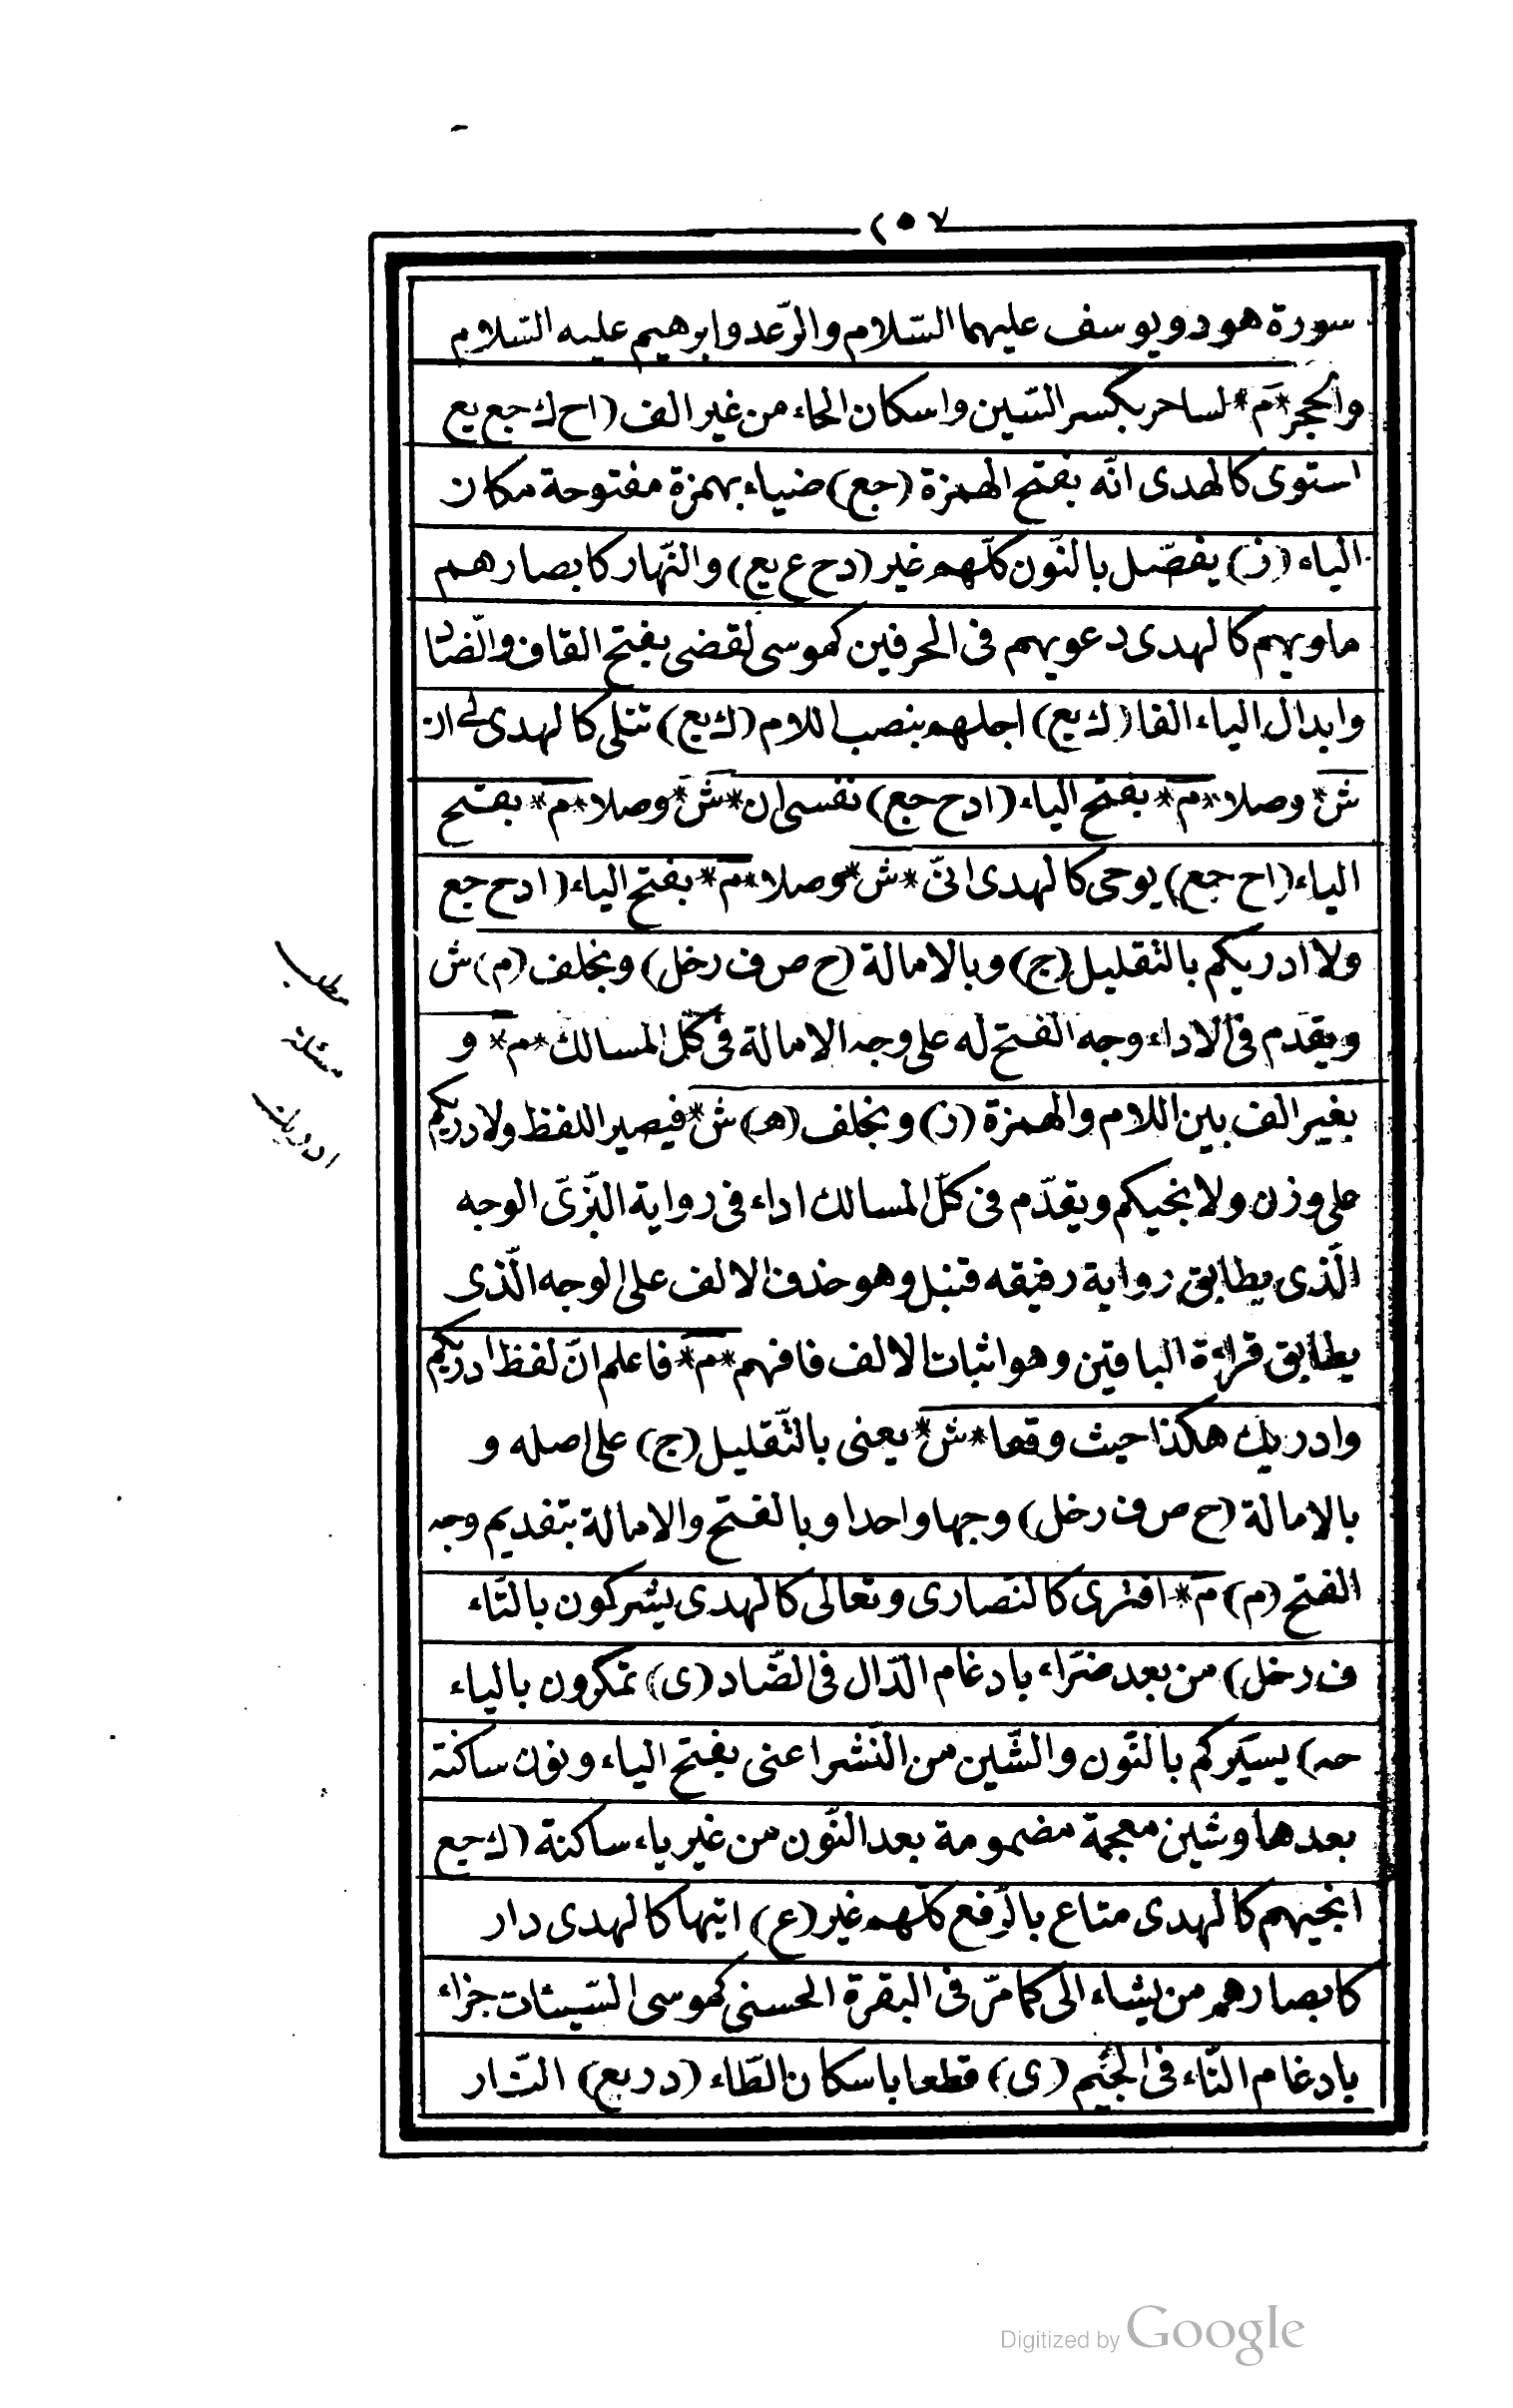 ٢٥٧
سورة هود ويوسف عليهما السّلام والرّعد وابرهيم عليه السّلام
والحجر *م* لساحر بكسر السّين واسكان الحاء من غير الف (اح ك جع يع
استوى كالهدى انّه بفتح الهمزة (جع) ضياء بهمزة مفتوحة مكان
الياء (ز) يفصّل بالنّون كلّهم غير (دح ع يع) والنّهار كابصارهم
ماويهم كالهدى دعويهم فى الحرفين كموسى لقضى بفتح القاف والضّاد
وابدال الياء الفا (ك يع) اجلهم بنصب اللام (ك يع) تتلى كالهدى لى ان
*ش* وصلا *م* بفتح الياء (ادح جع) نفسى ان *ش* وصلا *م* بفتح
الياء (اح جع) يوحى كالهدى انّى *ش* وصلا *م* بفتح الياء (ادح جع
ولا ادريكم بالتّقليل (ج) وبالامالة (ح ص ف رخل) وبخلف (م) ش
ويقدّم فى الاداء وجه الفتح له على وجه الامالة فى كلّ المسالك *م* و
بغير الف بين اللام والهمزة (ز) وبخلف (ه) ش* فيصير اللفظ ولادريكم
على وزن ولانجيكم ويقدّم فى كلّ المسالك اداء فى رواية البزّى الوجه
الّذى يطابق رواية رفيقه قنبل وهو حذف الالف على الوجه الّذى
يطابق قراءة الباقين وهو اثبات الالف فافهم *م* فاعلم انّ لفظ ادريكم
وادريك هكذا حيث وقعا *ش* يعنى بالتّقليل (ج) على اصله و
بالامالة (ح ص ف رخل) وجها واحدا وبالفتح والامالة بتقديم وجه
الفتح (م) م* افترى كالنّصارى وتعالى كالهدى يشركون بالتّاء
ف رخل) من بعد ضرّاء بادغام الدّال فى الضّاد (ى) تمكرون بالياء
حه) يسيّركم بالنّون والشّين من النّشر اعنى بفتح الياء ونون ساكنة
بعدها وشين معجمة مضمومة بعد النّون من غير ياء ساكنة (ك جع
انجيهم كالهدى متاع بالرّفع كلّهم غير (ع) اتيها كالهدى دار
كابصارهم من يشاء الى كما مرّ فى البقرة الحسنى كموسى السّيئات جزاء
بادغام التّاء فى الجيم (ى) قطعا باسكان الطّاء (د ر يع) النّار
مطلب
مسئلة
ادريك
Digitized by Google